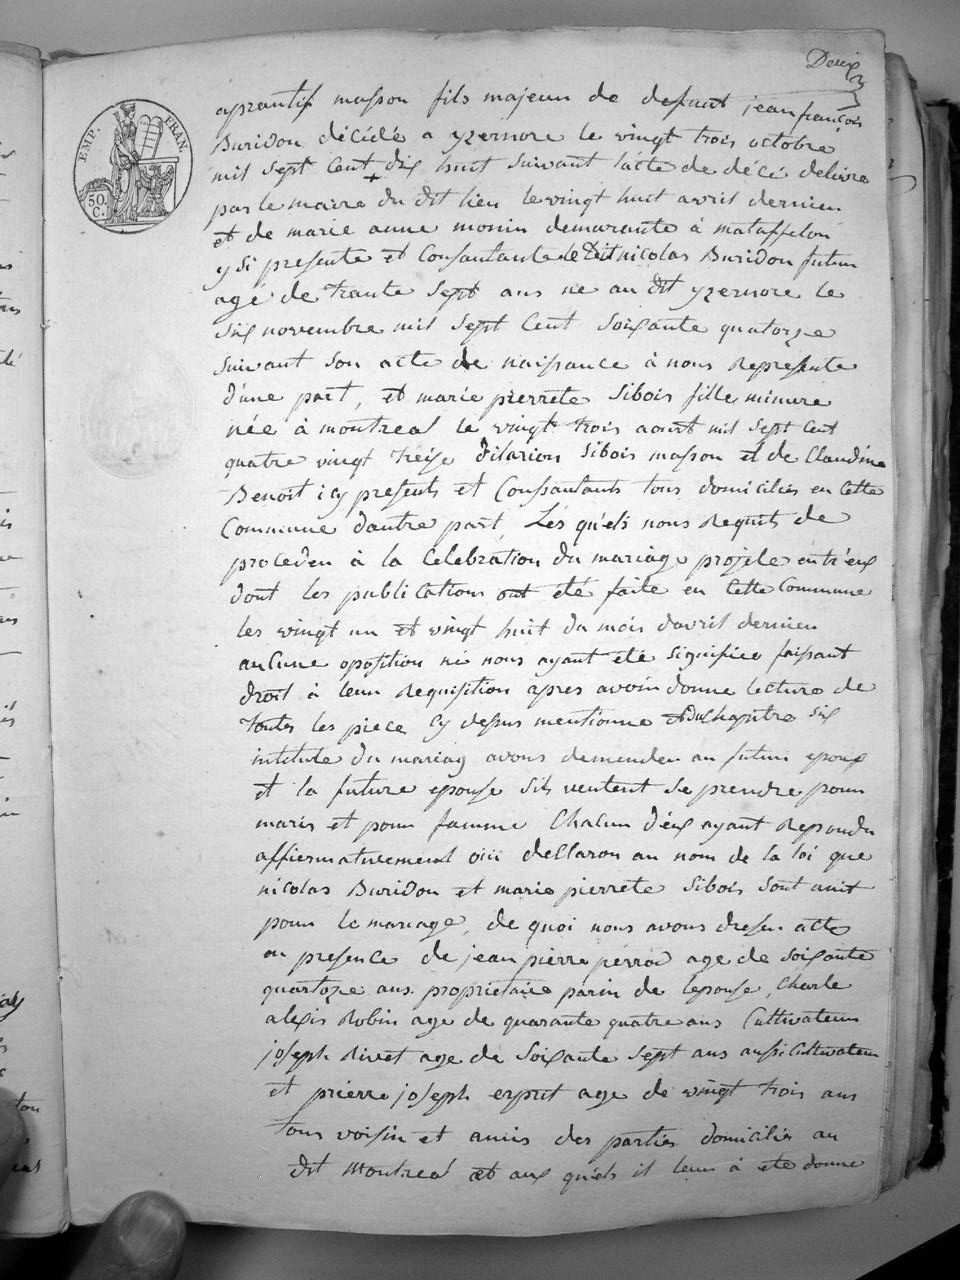 Deux
EMP. FRAN.
50. C.
aprantif masson fils majeur de defunt jean françois
Buridon décédé a yzernore le vingt trois octobre
mil sept cent dix huit suivant l'acte de décé delivre
par le maire du dit lieu le vingt huit avril dernier
et de marie anne monin demurante à matafelon
y si presente et Consantante le dit nicolas Buridon futur
agé de trante sept ans ne au dit yzernore le
six novembre mil sept Cent soixante quatorze
suivant son acte de naissance à nous Represente
d'une part, et marie pierrete Sibois fille mineure
née à montreal le vingt trois aoust mil sept Cent
quatre vingt treize d'ilarion Sibois masson et de Claudine
Benoit icy presents et Consantants tous domiciliés en Cette
Commune d'autre part Lés qu'els nous Requis de
proceder à la Celebration du mariage projete entr'eux
dont les publications ont été faite en Cette Commune
les vingt un et vingt huit du mois d'avril dernier
aucune oposition ne nous ayant eté significe faissant
droit à leur Requisition apres avoir donne lecture de
toutes les piece Cy desus mentionne et du chapitre six
intitule du mariag avons demender au futur epoux
et la future epouse sils veutent se prendre pour
maris et pour famme Chacun d'eux ayant Repondu
affiermativement oui declaron au nom de la loi que
nicolas Buridon et marie pierrete Sibois sont unit
pour le mariage, de quoi nous avons dresser acte
en presence de jean pierre perrod age de soixante
quartoze ans proprietaire parin de lepouse, Charle
alexis Robin age de quarante quatre ans Cultivateur
joseph Rivet age de soixante sept ans aussi Cultivateur
et prierre joseph age de vingt trois ans
tous voisin et amis des parties domiciliés au
dit montreal et aux qu'els il leur à ete donne